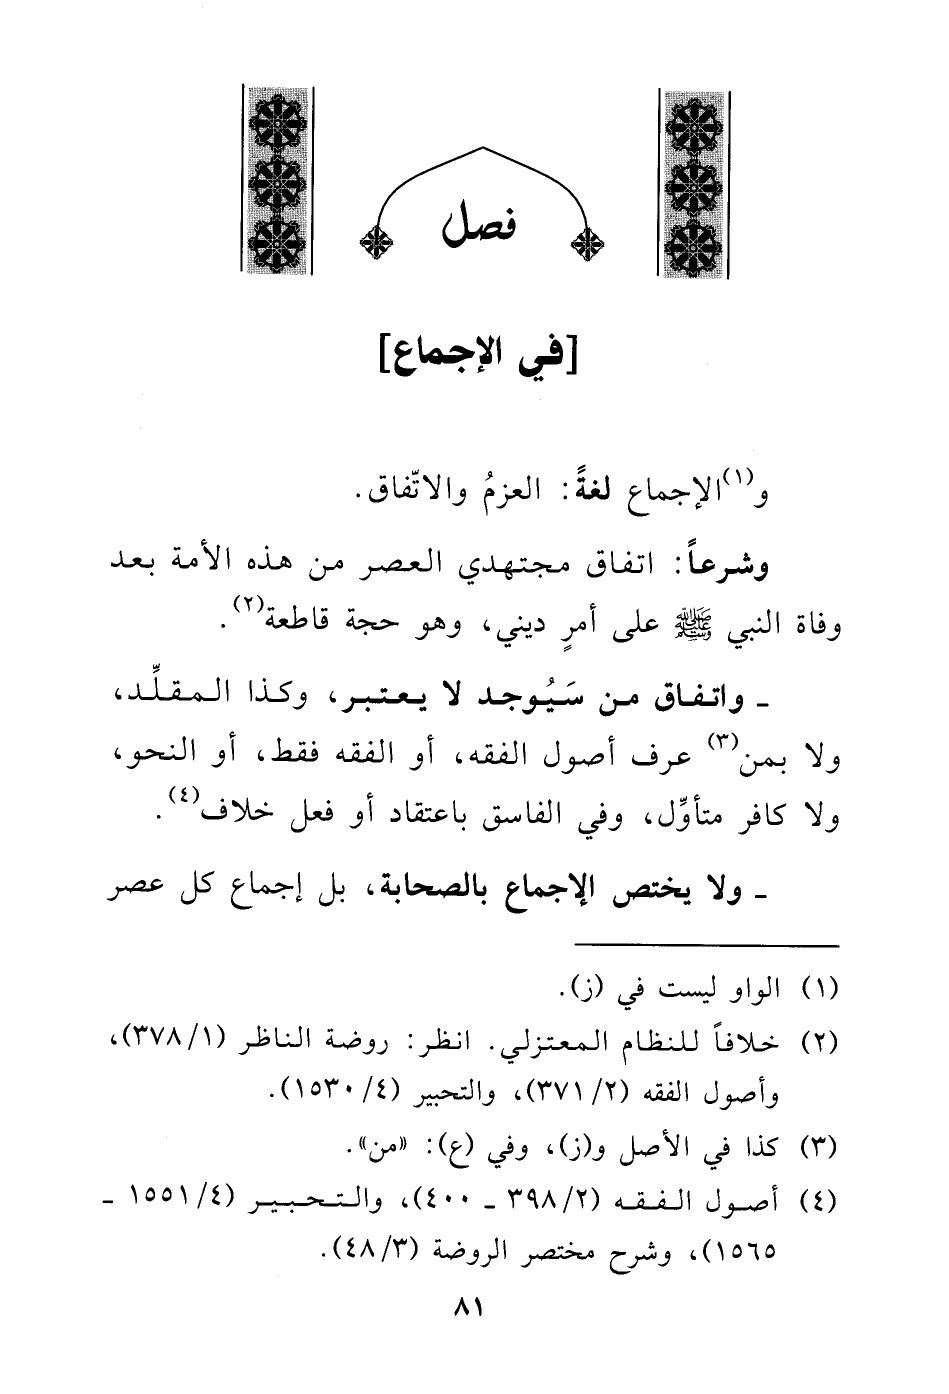 فصل
[في الإجماع]
و(١)الإجماع لغةً: العزمُ والاتّفاق.
وشرعاً: اتفاق مجتهدي العصر من هذه الأمة بعد
وفاة النبي ﷺ على أمرٍ ديني، وهو حجة قاطعة(٢).
ـ واتفاق من سَيُوجد لا يعتبر، وكذا المقلِّد،
ولا بمن(٣) عرف أصول الفقه، أو الفقه فقط، أو النحو،
ولا كافر متأوِّل، وفي الفاسق باعتقاد أو فعل خلاف(٤).
ـ ولا يختص الإجماع بالصحابة، بل إجماع كل عصر
(١) الواو ليست في (ز).
(٢) خلافاً للنظام المعتزلي. انظر: روضة الناظر (٣٧٨/١)،
وأصول الفقه (٣٧١/٢)، والتحبير (١٥٣٠/٤).
(٣) كذا في الأصل و(ز)، وفي (ع): «من».
(٤) أصول الفقه (٣٩٨/٢ ـ ٤٠٠)، والتحبير (١٥٥١/٤ ـ
١٥٦٥)، وشرح مختصر الروضة (٤٨/٣).
٨١